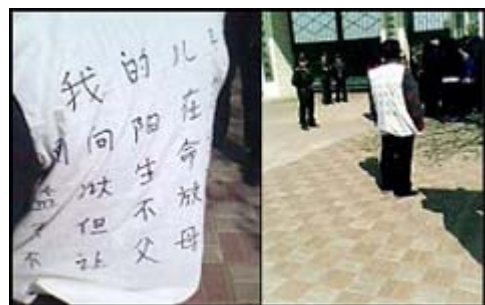 我的儿
向阳在
监狱生命
但不放
不让父母